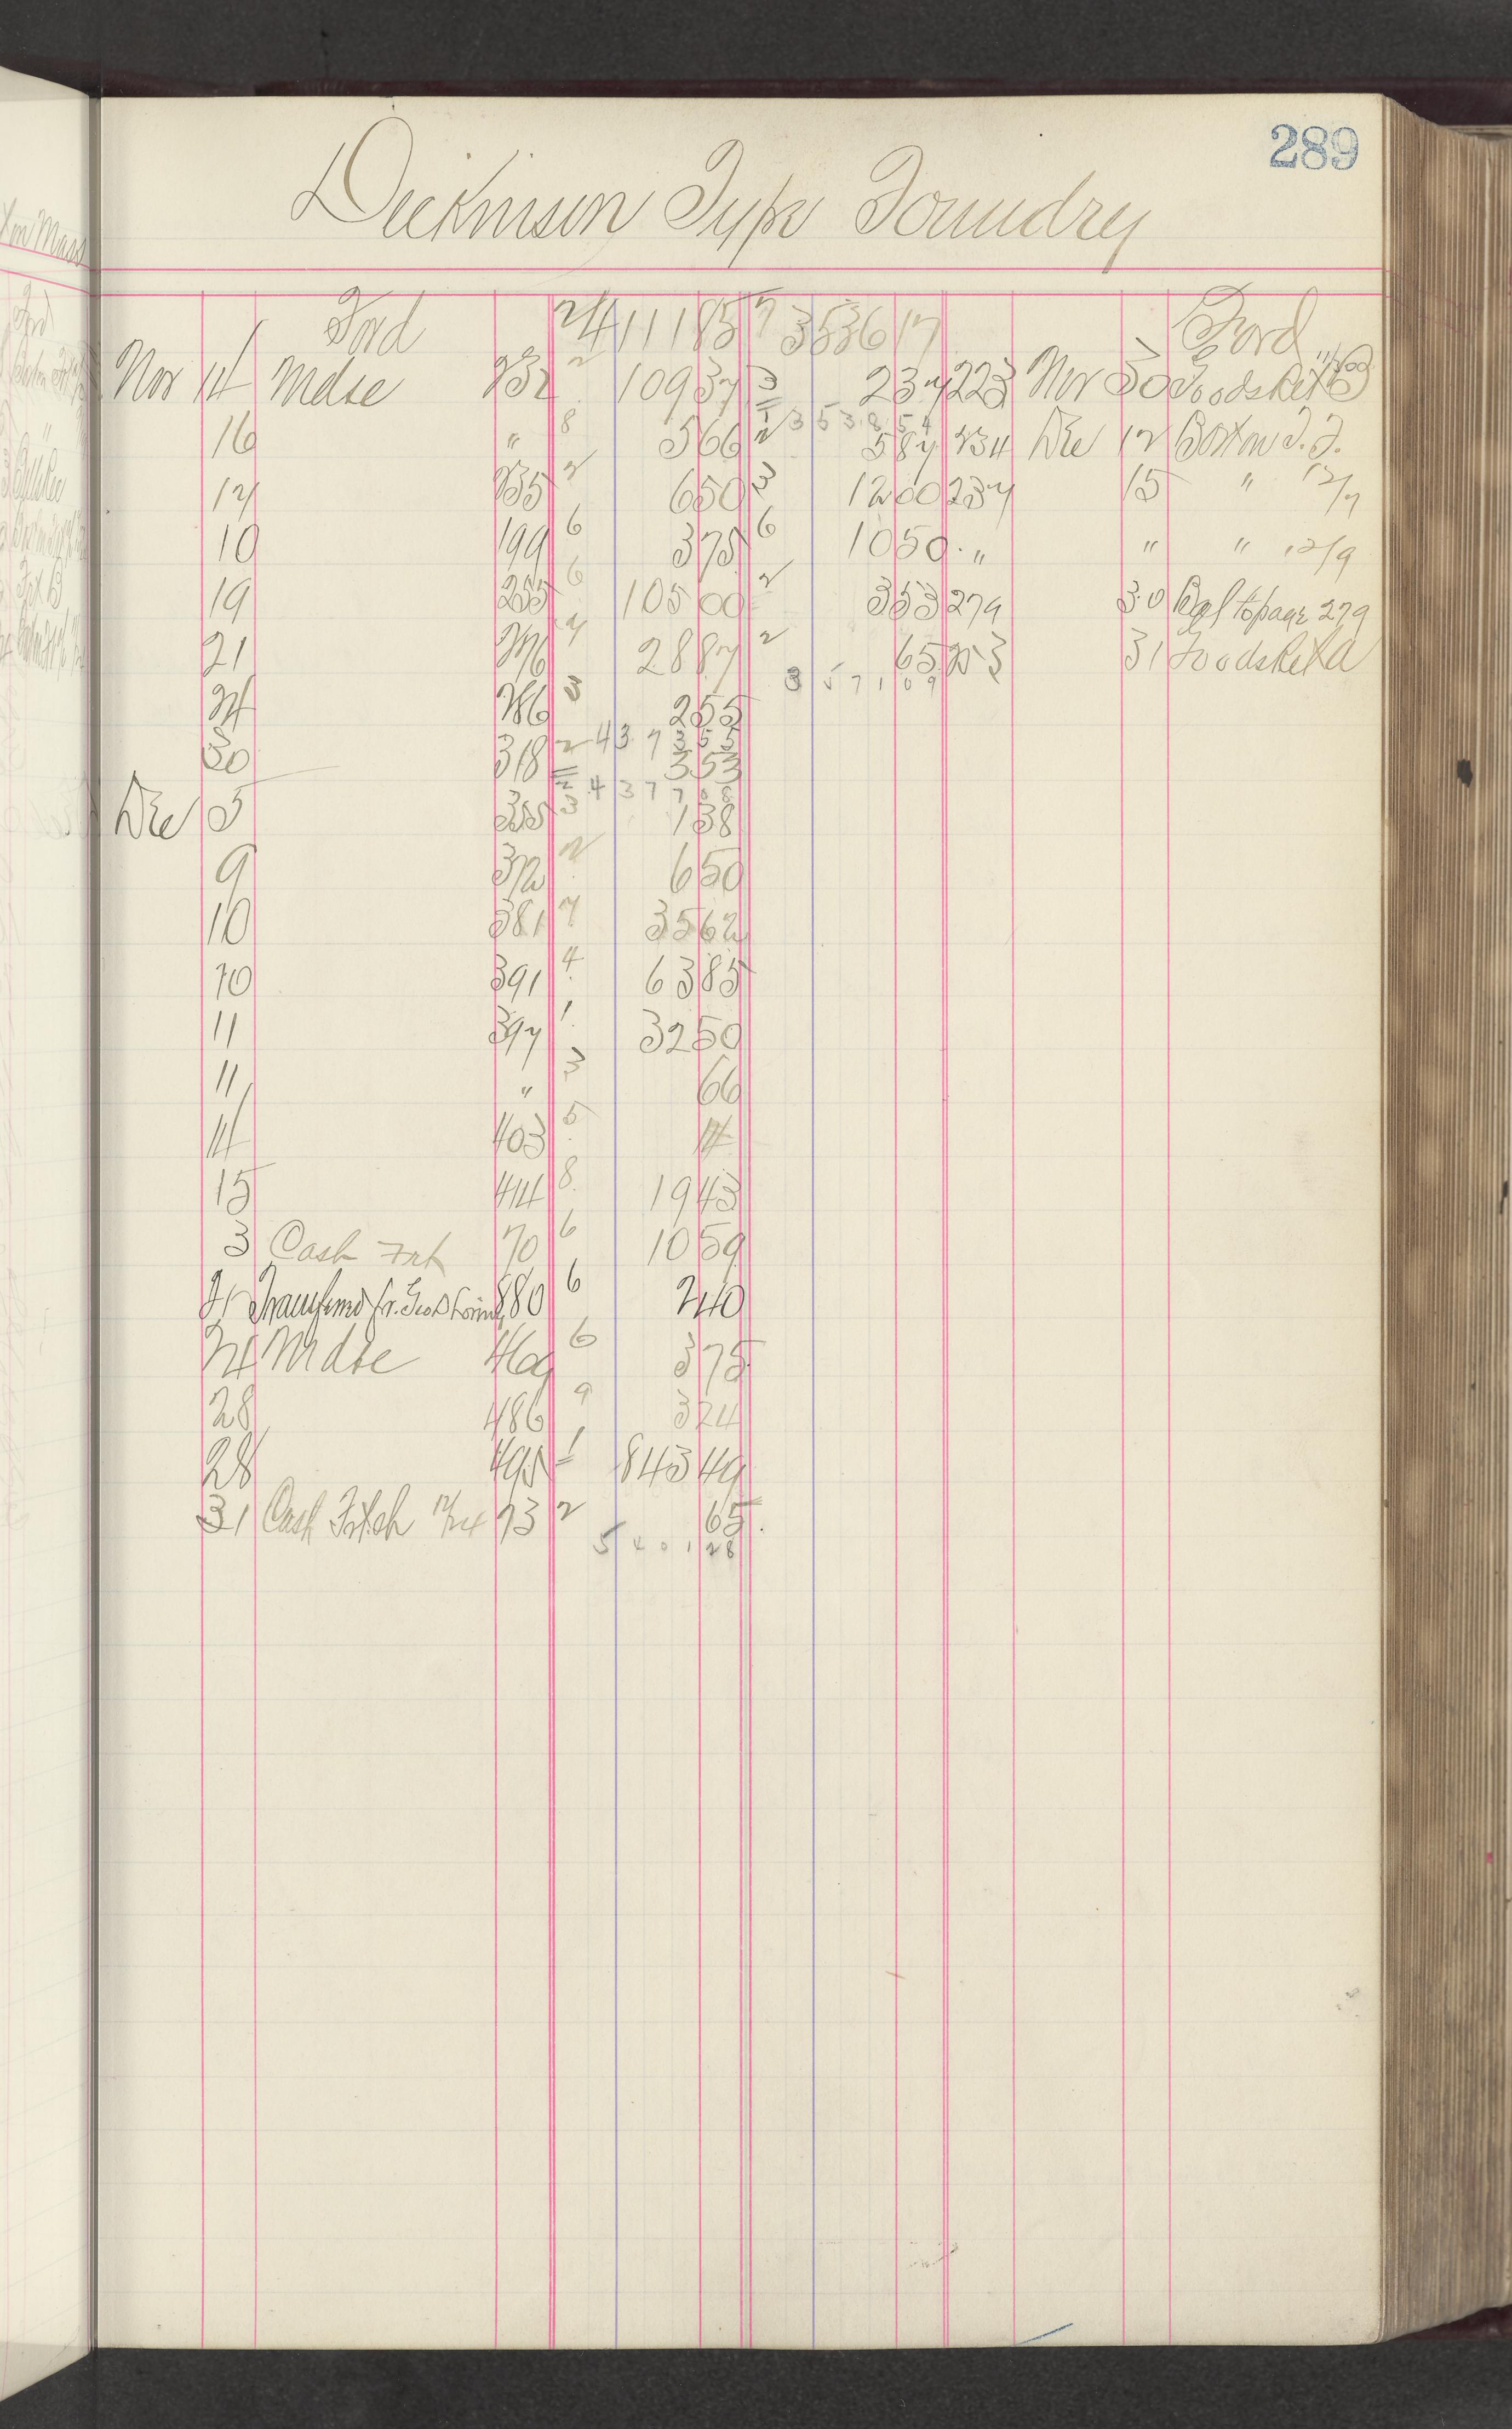 289
Dickinson Type Foundry
Ford 24 111 85 7 3536 17 Ford
Nov 14 Mdse 232 2 109 37 3 2 37 223 Nov 30 Goods Ret
3538 54
16 " 8 5 66 2 5 87 234 Dec 12 Boston T. F.
17 235 2 6 50 3 12 00 237 15 " 12/7
10 199 6 3 75 6 10 50 " " " 12/9
19 255 6 105 00 2 3 53 279 30 Bal to page 279
21 276 7 28 87 2 65 253 31 Goods Ret'd
3571 09
24 286 3 2 55
4373 55
30 318 2 3 53
4377 08
Dec 5 355 3 1 38
9 372 2 6 50
10 381 7 35 62
10 391 4 63 85
11 397 1 32 50
11 " 3 66
14 403 5 14
15 414 8 19 43
3 Cash Frt 70 6 10 59
21 Transferred fr. Geo 880 6 2 40
24 Mdse 469 6 3 75
28 486 9 3 24
28 495 1 843 49
31 Cash Fitch 12/24 73 2 65
5401 28